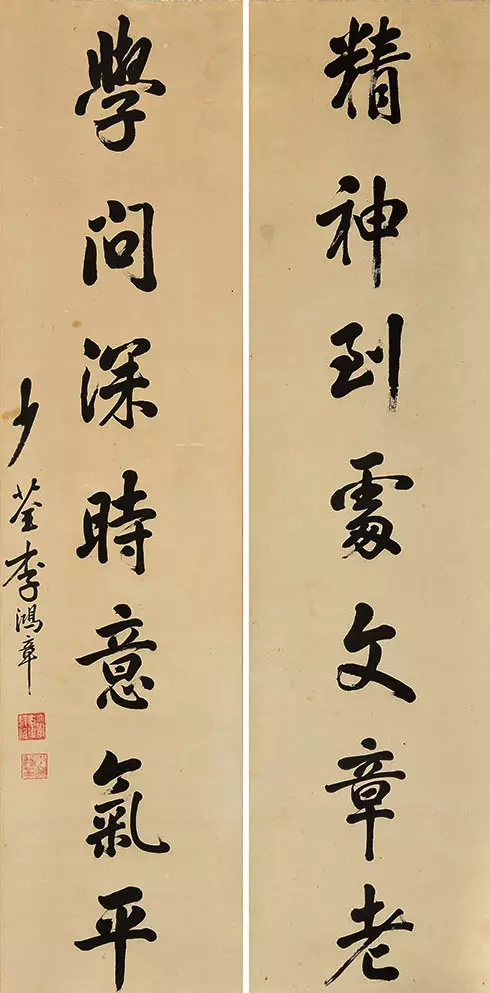 精神到處文章老
學問深時意氣平
少荃李鴻章